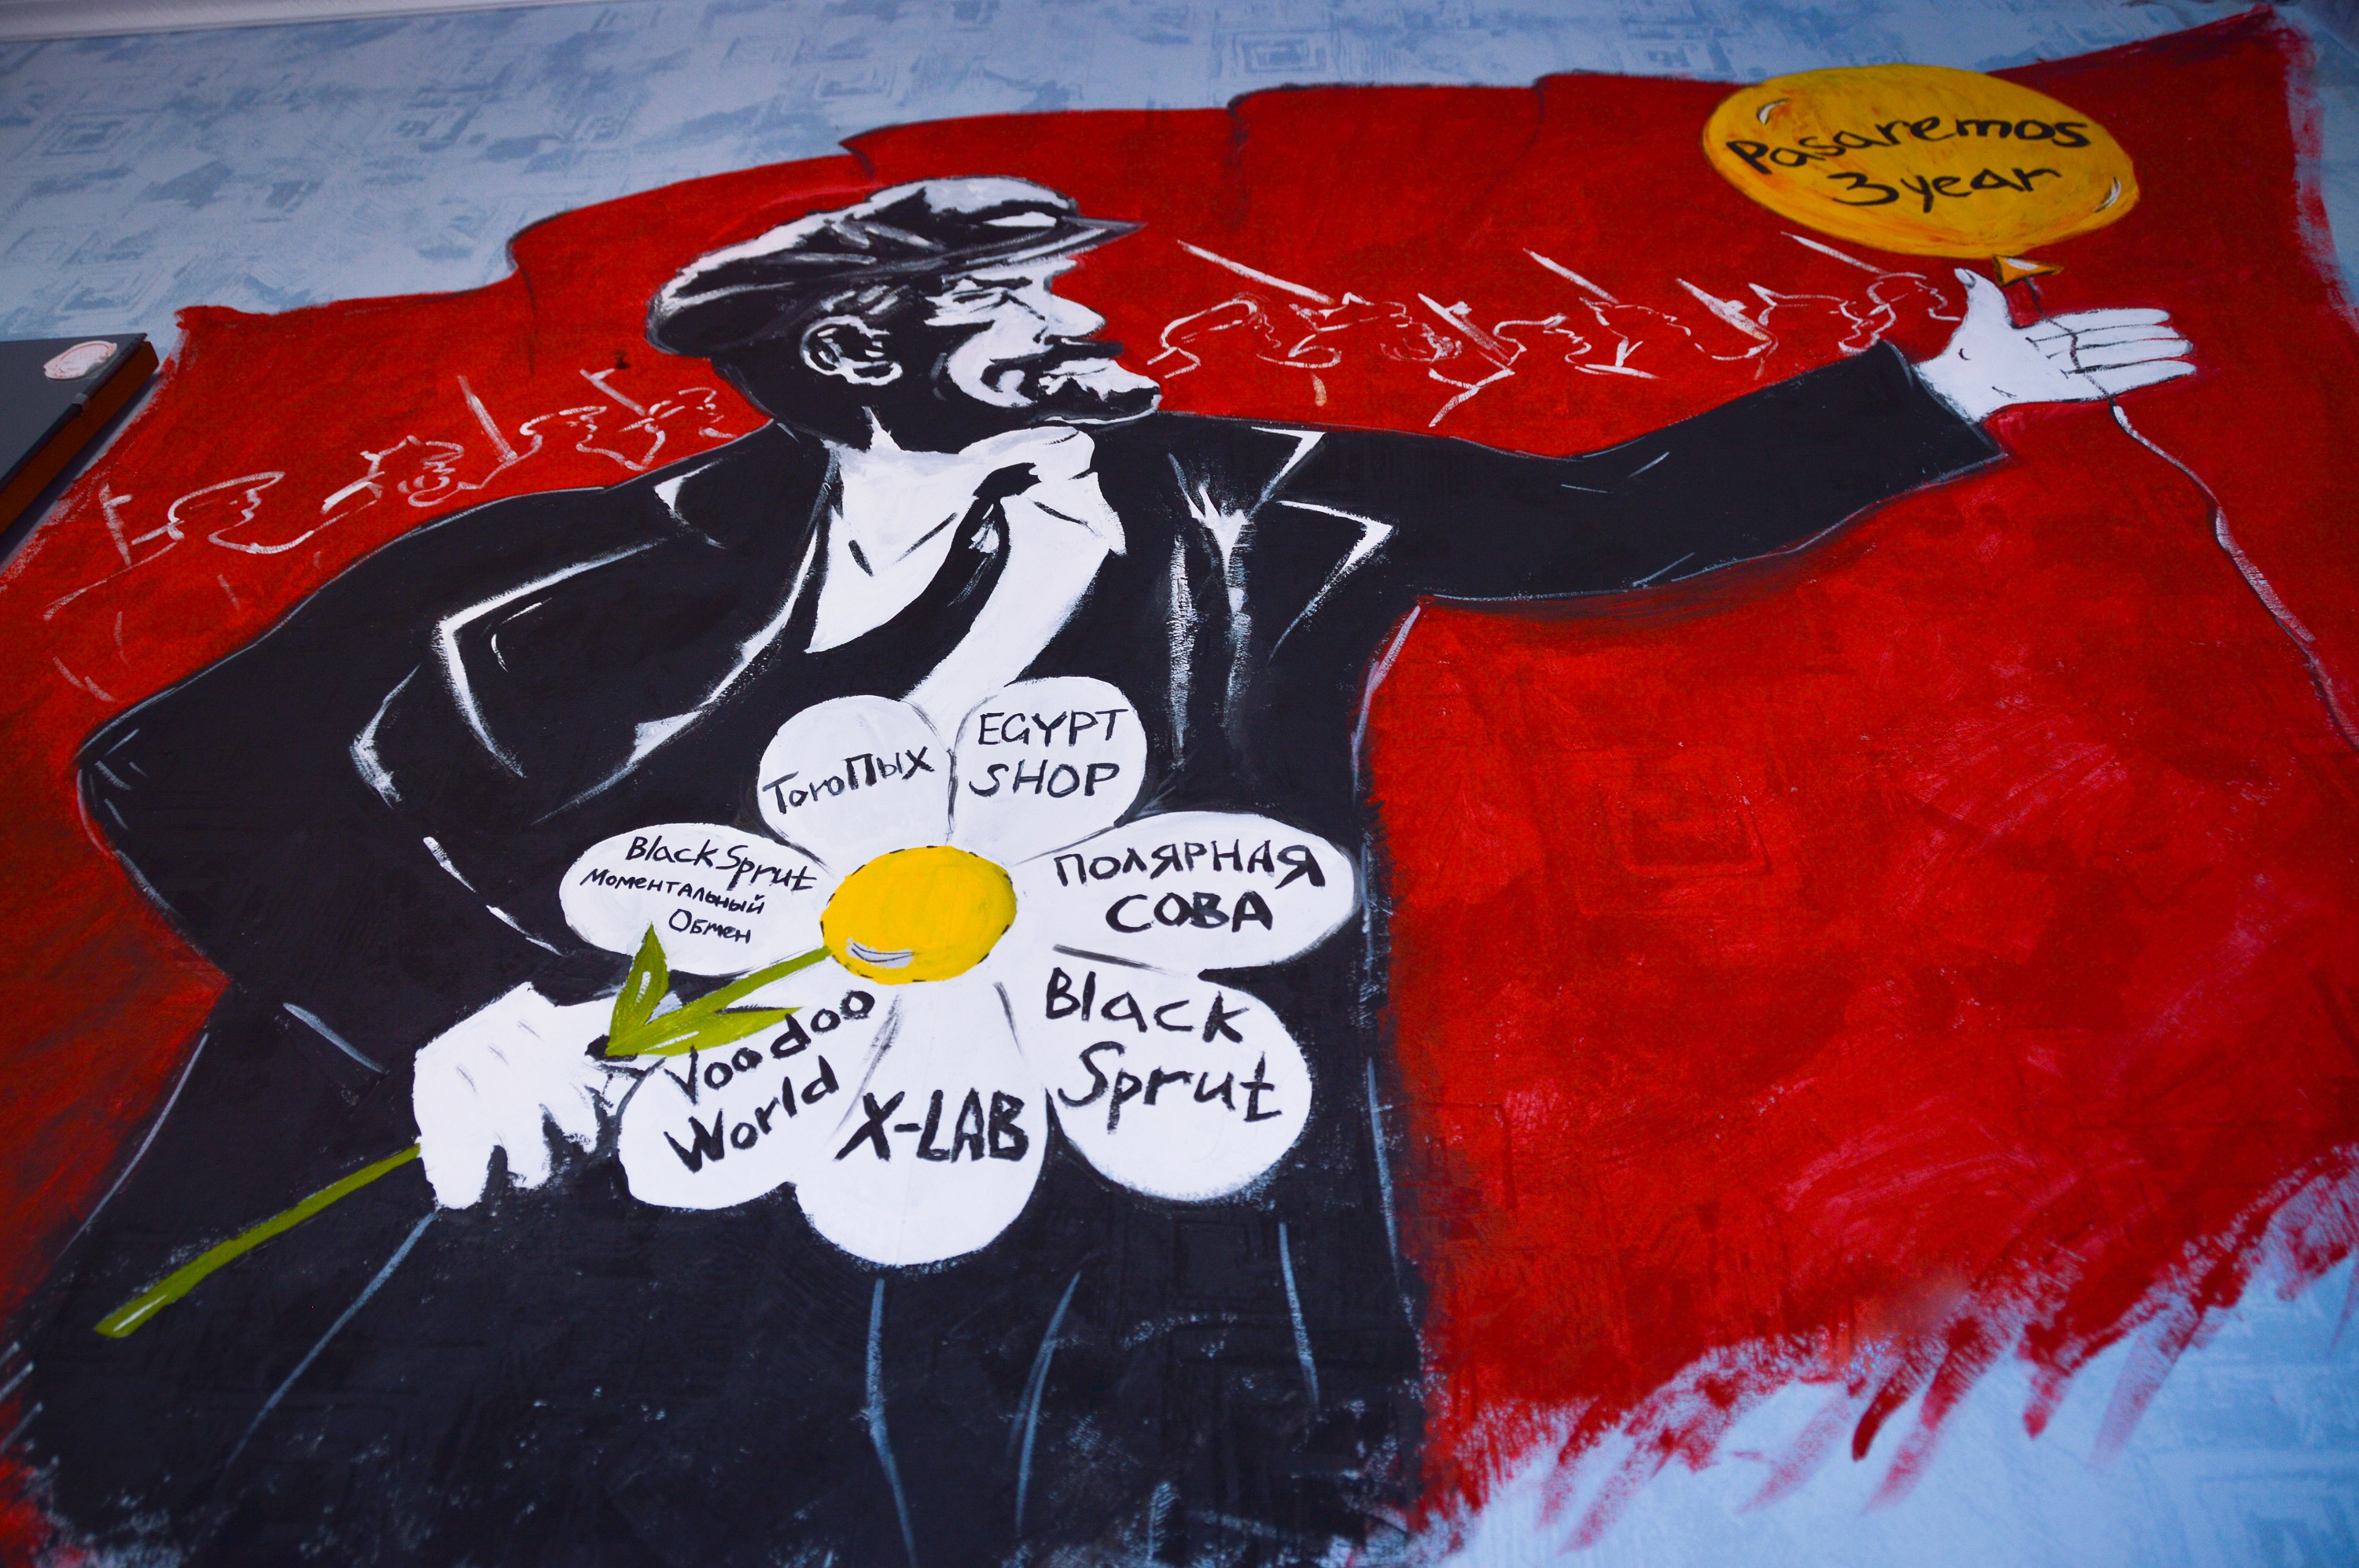 Pasaremos
3 year
ТогоПых
EGYPT
SHOP
BlackSprut
Моментальный
Обмен
ПОЛЯРНАЯ
СОВА
Black
Sprut
Voodoo
World
X-LAB